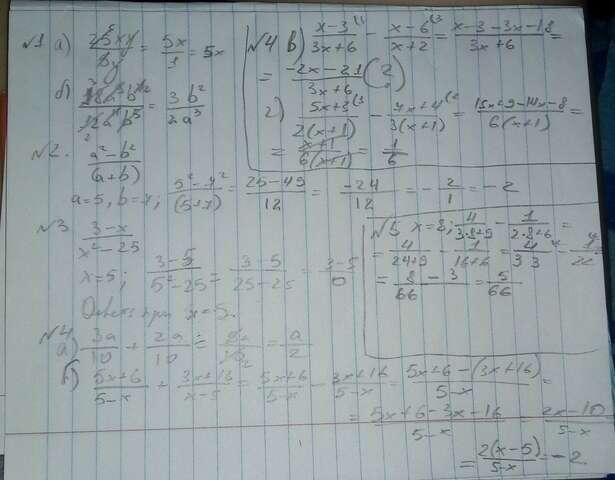 №1 а) 25xy/5y = 5x/1 = 5x
б) 18a⁴b¹²/12a⁷b⁵ = 3b²/2a³
№2. a²-b²/(a+b)
a=5, b=7; 5²-7²/(5+7) = 25-49/12 = -24/12 = -2/1 = -2
№3 3-x/x²-25
x=5; 3-5/5²-25 = 3-5/25-25 = 3-5/0
Ответ: при x=5.
№4
а) 3a/10 + 2a/10 = 5a/10 = a/2
б) 5x+6/5-x + 3x+16/x-5 = 5x+6/5-x - 3x+16/5-x = 5x+6-(3x+16)/5-x =
= 5x+6-3x-16/5-x = 2x-10/5-x
= 2(x-5)/5-x = -2
№4 в) x-3/3x+6 - x-6/x+2 = x-3-3x-18/3x+6 =
= -2x-21/3x+6 (?)
г) 5x+3/2(x+1) - 7x+4/3(x+1) = 15x+9-14x-8/6(x+1) =
= x+1/6(x+1) = 1/6
№5 x=8; 4/3·8+9 - 1/2·8+6 =
= 4/24+9 - 1/16+6 = 4/33 - 1/22 =
= 8-3/66 = 5/66